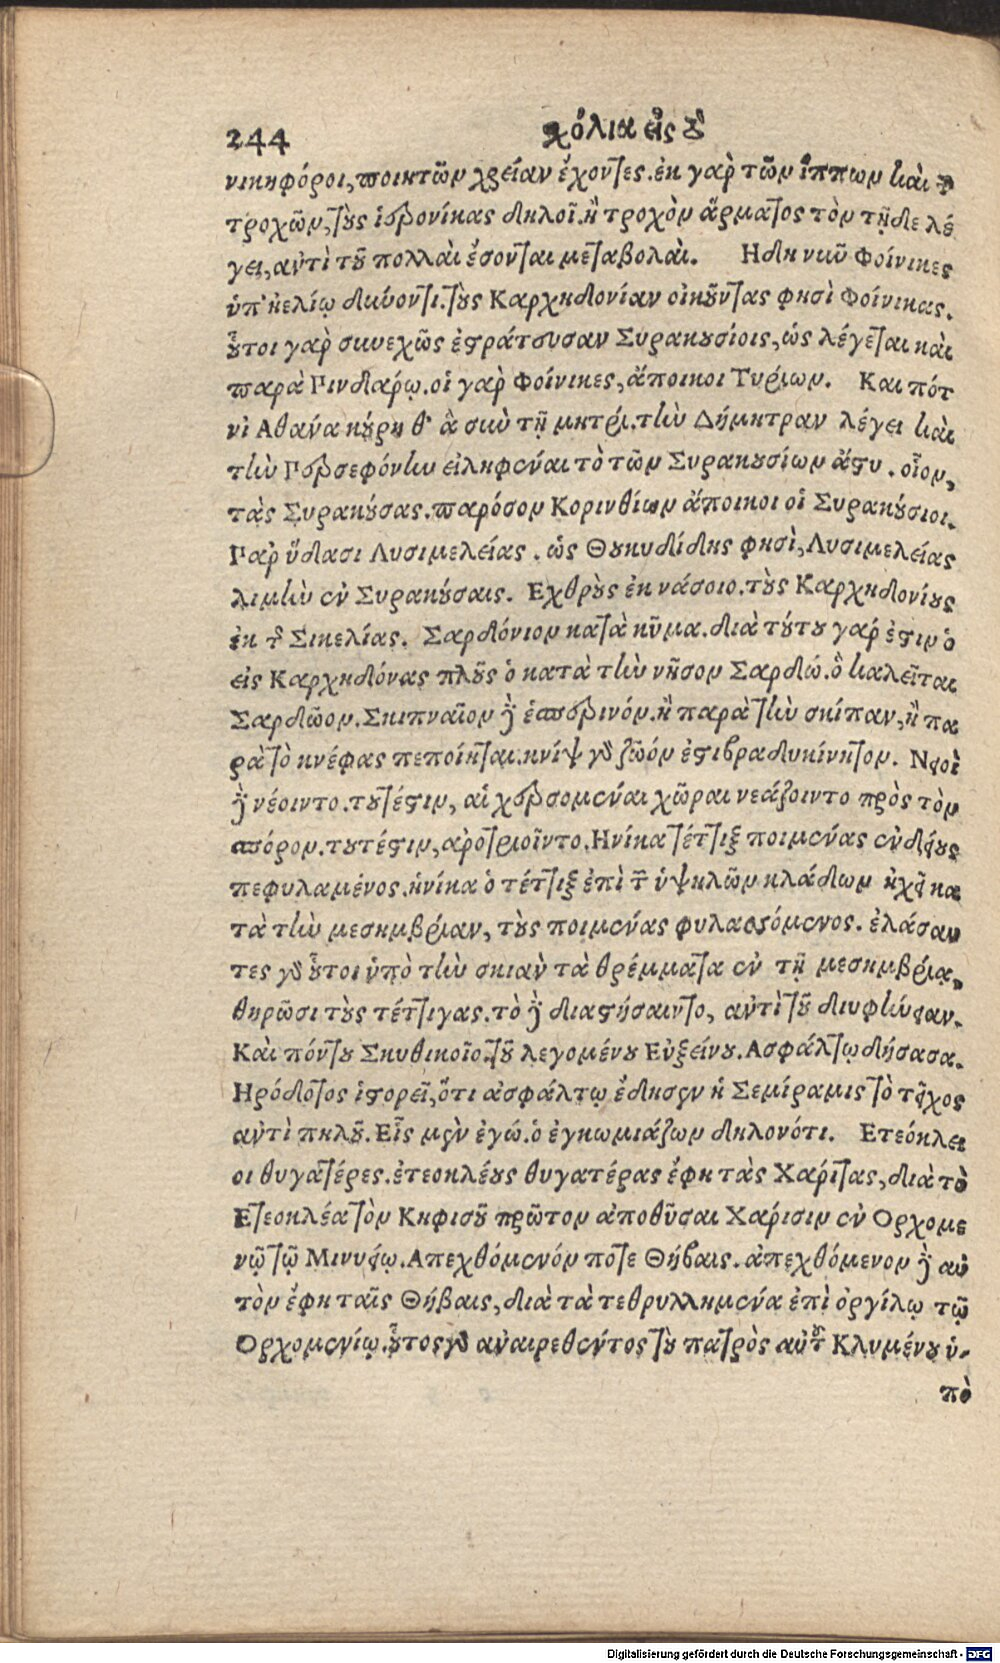 244 χόλια εἰς τὸ
νικηφόροι, ποικτῶν χρείαν ἔχοντες. ἐκ γὰρ τῶν ἵππων καὶ τ
τροχῶν, τοὺς ἱερονίκας δηλοῖ. ἢ τροχὸν ἅρματος τὸν τῇδε λέ
γει, αὐτὶ τοῦ πολλαὶ ἔσονται μεταβολαὶ. Ηδη νιῦ Φοίνικες
ὑπ' ἠελίῳ δύνοντι. τοὺς Καρχηδονίαν οἰκοῦντας φησὶ Φοίνικας.
οὗτοι γὰρ συνεχῶς ἐστράτευσαν Συρακουσίοις, ὡς λέγεται καὶ
παρὰ Πινδάρῳ. οἱ γὰρ Φοίνικες, ἄποικοι Τυρίων. Και πότ
νὶ Αθανα κούρη θ' ἃ σὺν τῇ μητρί. τὴν Δήμητραν λέγει καὶ
τὴν Περσεφόνην εἰληφέναι τὸ τῶν Συρακουσίων ἄστυ. οἷον,
τὰς Συρακούσας. παρόσον Κορινθίων ἄποικοι οἱ Συρακούσιοι.
Παρ ὕδασι Λυσιμελείας. ὡς Θουκυδίδης φησὶ, Λυσιμελείας
λιμὴν ἐν Συρακούσαις. Εχθροὺς ἐκ νάσοιο. τοὺς Καρχηδονίους
ἐκ τῆς Σικελίας. Σαρδόνιον κατὰ κῦμα. διὰ τούτου γάρ ἐστιν ὁ
εἰς Καρχηδόνας πλοῦς ὁ κατὰ τὴν νῆσον Σαρδώ. ὃ καλεῖται
Σαρδῶον. Σκιπναῖον ἢ ἑσπερινόν. ἢ παρὰ τὴν σκίπαν, ἢ πα
ρὰ τὸ κνέφας πεποίηται. κνίψ γὰρ ζῶόν ἐστι βραδυκίνητον. Νειοὶ
ἢ νέοιντο. τουτέστιν, αἱ χερσομέναι χῶραι νεάζοιντο πρὸς τὸν
σπόρον. τουτέστιν, ἀροτριοῖντο. Ηνίκα τέττιξ ποιμένας ἐνδίους
πεφυλαμένος. ἡνίκα ὁ τέττιξ ἐπὶ τῶν ὑψηλῶν κλάδων ἠχεῖ κα
τὰ τὴν μεσημβρίαν, τοὺς ποιμένας φυλασσόμενος. ἐλάσαν
τες γὰρ οὗτοι ὑπὸ τὴν σκιὰν τὰ θρέμματα ἐν τῇ μεσημβρίᾳ,
θηρῶσι τοὺς τέττιγας. τὸ ἢ διαστήσαιντο, αὐτὶ τοῦ διυφήνειαν.
Καὶ πόντου Σκυθικοῖο. τοῦ λεγομένου Εὐξείνου. Ασφάλτῳ δήσασα.
Ηρόδοτος ἱστορεῖ, ὅτι ἀσφάλτῳ ἔδησεν ἡ Σεμίραμις τὸ τεῖχος
αὐτὶ πηλοῦ. Εἷς μὲν ἐγώ. ὁ ἐγκωμιάζων δηλονότι. Ετεόκλει
οι θυγατέρες. ἐτεοκλέους θυγατέρας ἔφη τὰς Χάριτας, διὰ τὸ
Ετεοκλέα τὸν Κηφισοῦ πρῶτον ἀποθῦσαι Χάρισιν ἐν Ορχομε
νῷ τῷ Μινυείῳ. Απεχθόμενόν ποτε Θήβαις. ἀπεχθόμενον ἢ αὐ
τὸν ἔφη ταῖς Θήβαις, διὰ τὰ τεθρυλλημένα ἐπὶ ὀργίλῳ τῷ
Ορχομενίῳ. οὗτος γὰρ ἀναιρεθέντος τοῦ πατρὸς αὐτοῦ Κλυμένου ὑ-
πὸ
Digitalisierung gefördert durch die Deutsche Forschungsgemeinschaft - DFG